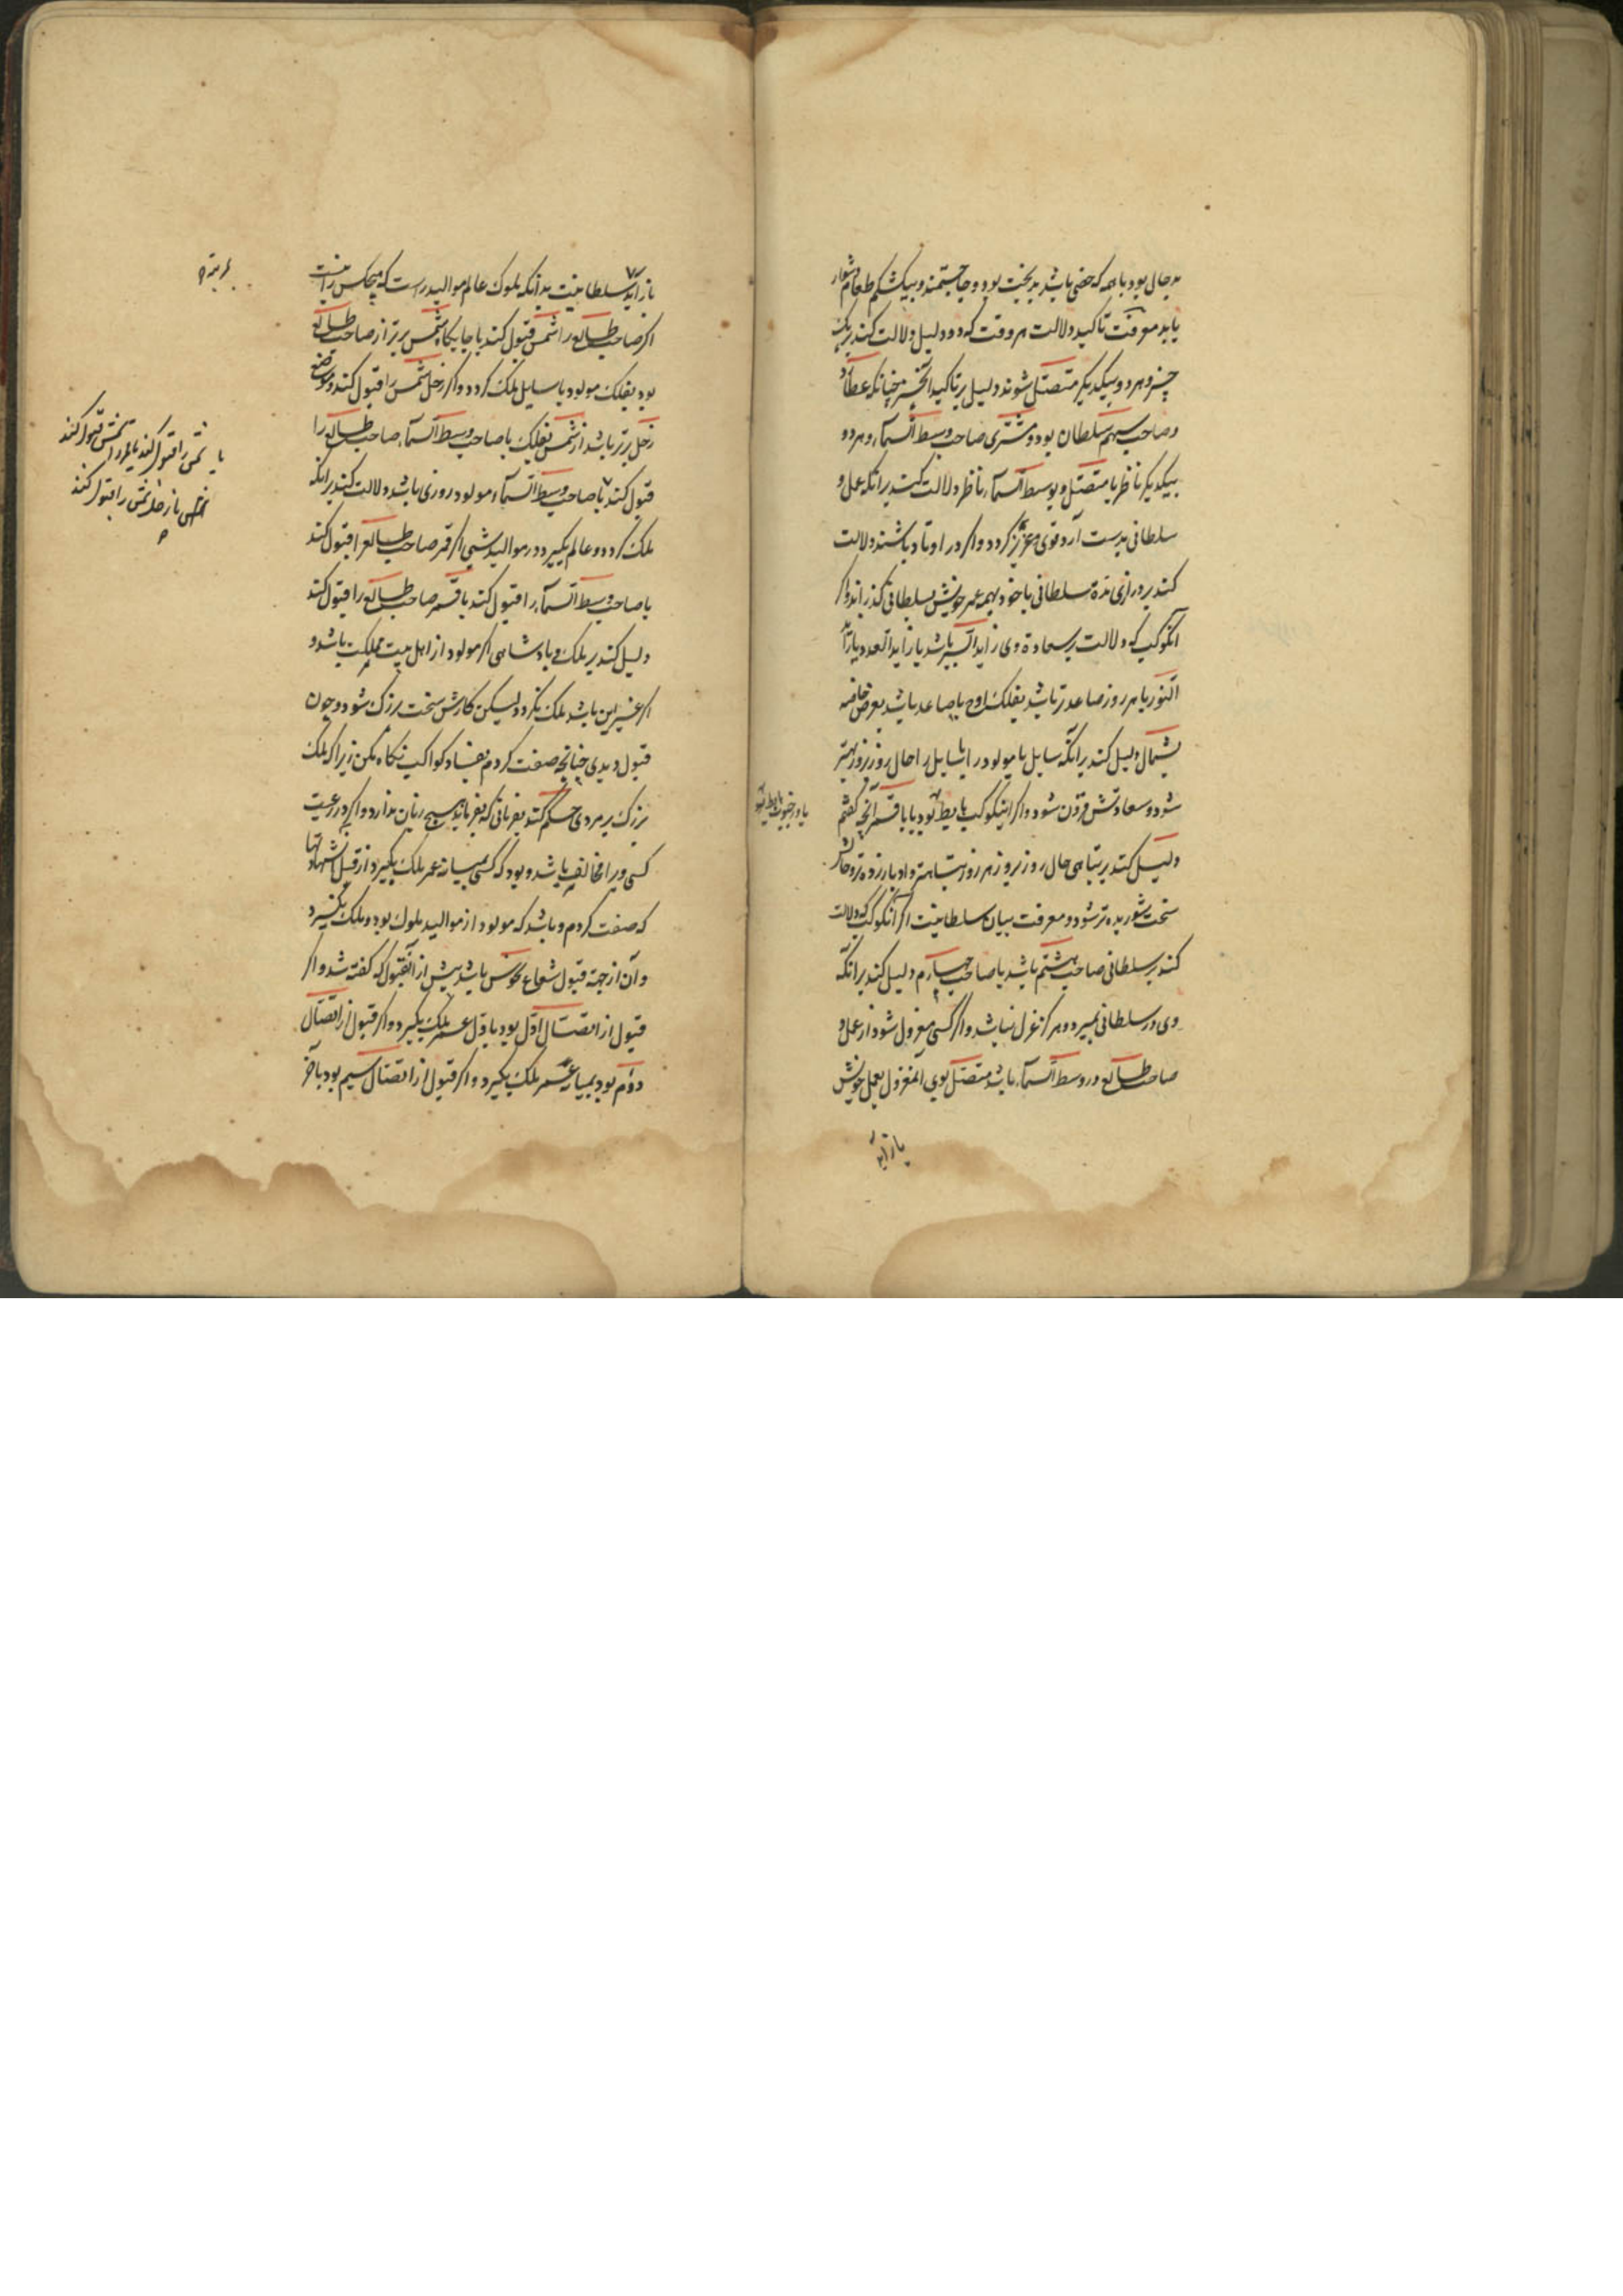 بدحالی بود با همه که حضی باشد بدبخت بود و حاجتمند و بیک شکم طعام دشوار
یابد معرفت تاکید دلالت هر وقت که دو دلیل دلالت کند بریک
چیز و هر دو بیکدیگر متصل شوند دلیل بر تاکید آنچیز چنانکه عطارد
و صاحب سهم سلطان بود و مشتری صاحب وسط السماء و هر دو
بیکدیگر ناظر یا متصل و بوسط السماء ناظر دلالت کنند برانکه عمل و
سلطانی بدست آرد قوی و عزیز گردد و اگر در اوتاد باشند دلالت
کند بر درازی مدة سلطانی یا خود بهمه عمر خویش بسلطانی گذراند و اگر
آنکوکب که دلالت بر سعادة وی زاید السیر باشد یا زاید العدد یا زاید
النور یا هر روز صاعدتر باشد بفلک اوج یا صاعد باشد بعرض خاصه
بشمال دلیل کند برانکه سایل یا مولود را یا سایل را حال روز بروز بهتر
شود و سعادتش افزون شود و اگر اینکوکب هابط بود یا باقسم آنچه گفتم
دلیل کند بر تباهی حال روز بروز هر روز تباهتر و ادبار زده تر و حالش
سخت شوریده تر شود و معرفت بیان سلطانیت اگر آنکوکب که دلالت
کند بر سلطانی صاحب هشتم باشد یا صاحب چهارم دلیل کند برانکه
وی در سلطانی بمیرد و هرگز عزل نباشد و اگر کسی معزول شود از عمل و
صاحب طالع در وسط السماء باشد متصل بوی آنمعزول بعمل خویش
باز آید
باز آید سلطانیت بدانکه ملوک عالم موالید راست که هیچکس را نیست
اگر صاحب طالع را شمس قبول کند یا جایگاه شمس برتر از صاحب طالع
بود بفلک مولود یا سایل ملک گردد و اگر زحل شمس را قبول کند و موضع
زحل برتر باشد از شمس بفلک یا صاحب وسط السماء صاحب طالع را
قبول کند یا صاحب وسط السماء و مولود روزی باشد دلالت کند برانکه
ملک گردد و عالم بگیرد و در موالید شبی اگر قمر صاحب طالع را قبول کند
یا صاحب وسط السماء را قبول کند یا قمر صاحب طالع را قبول کند
دلیل کند بر ملک و پادشاهی اگر مولود از اهل بیت مملکت باشد و
اگر غیر این باشد ملک نگردد لیکن کارش سخت بزرگ شود و چون
قبول دیدی چنانچه صفت کردم بفساد کواکب نگاه مکن زیرا که ملک
بزرگ بر مردی حکم کند بفرمانی که بفرماید هیچ زیان ندارد و اگر در رعیت
کسی ویرا مخالف باشد و بود که کسی بمیانه عمر ملک بگیرد از قبل شهادتها
که صفت کردم و باشد که مولود از موالید ملوک بود و ملک نگیرد
و آن از جهة قبول شعاع نحوس باشد پیش از آنقبول که گفته شد و اگر
قبول از اتصال اول بود باول عمر ملک بگیرد و اگر قبول از اتصال
دوم بود بمیان عمر ملک بگیرد و اگر قبول از اتصال سیم بود بآخر